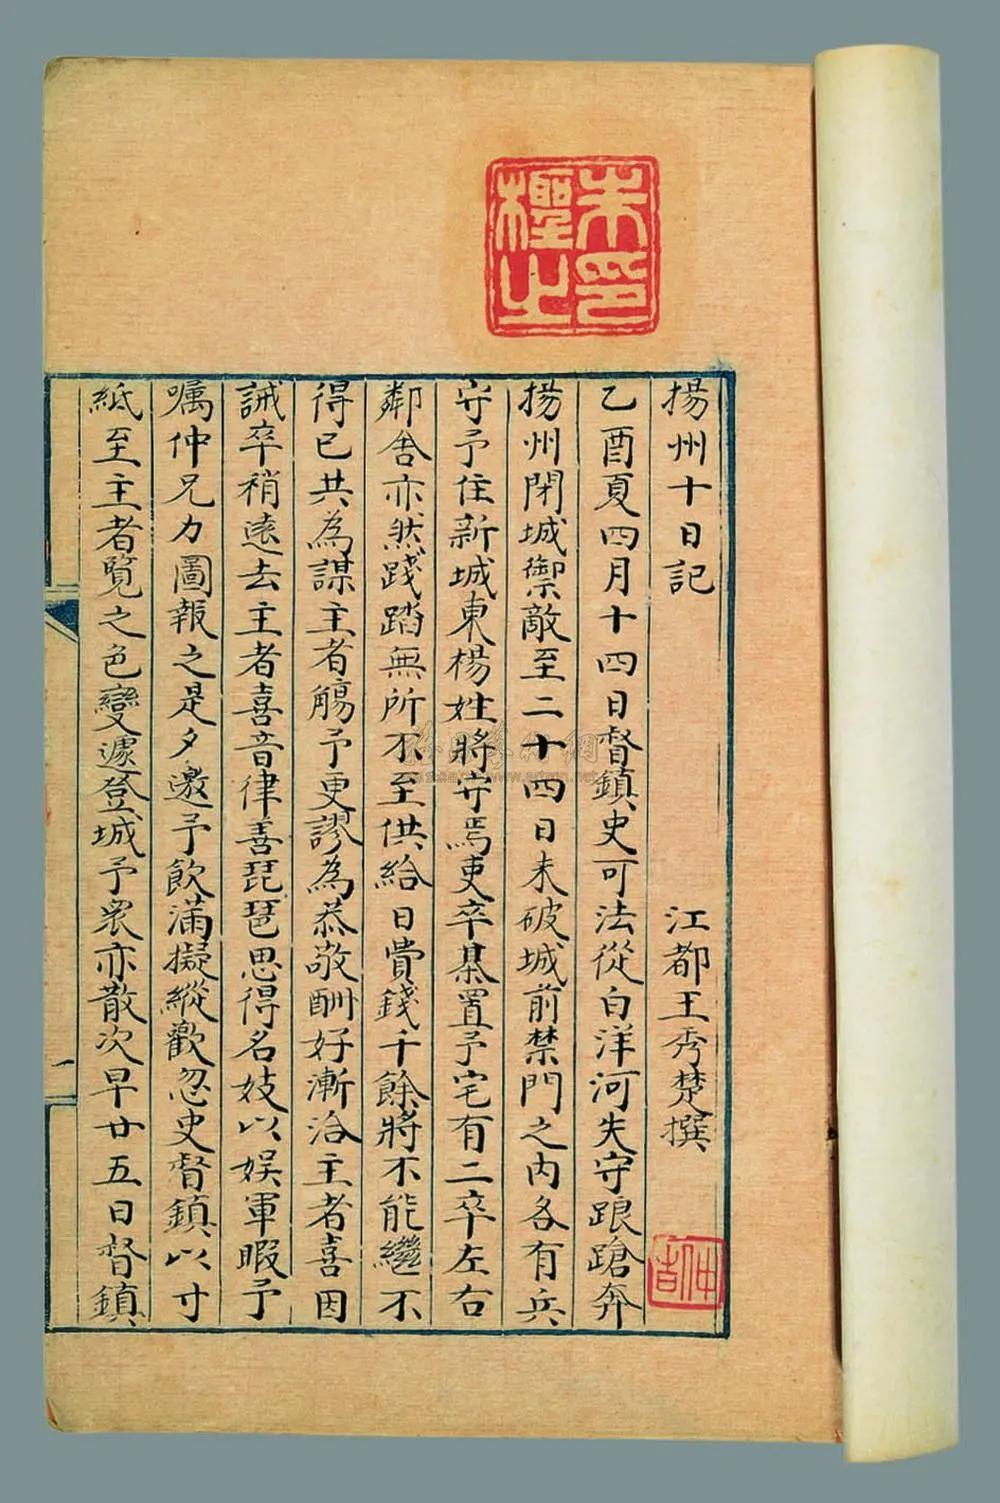 揚州十日記 江都王秀楚撰
乙酉夏四月十四日督鎮史可法從白洋河失守踉蹌奔
揚州閉城禦敵至二十四日未破城前禁門之內各有兵
守予住新城東楊姓將守焉吏卒棊置予宅有二卒左右
鄰舍亦然踐踏無所不至供給日費錢千餘將不能繼不
得已共為謀主者觴予更謬為恭敬酬好漸洽主者喜因
誡卒稍遠去主者喜音律善琵琶思得名妓以娛軍暇予
嘱仲兄力圖報之是夕邀予飲滿擬縱歡忽史督鎮以寸
紙至主者覽之色變遽登城予衆亦散次早廿五日督鎮
朱印
檉之